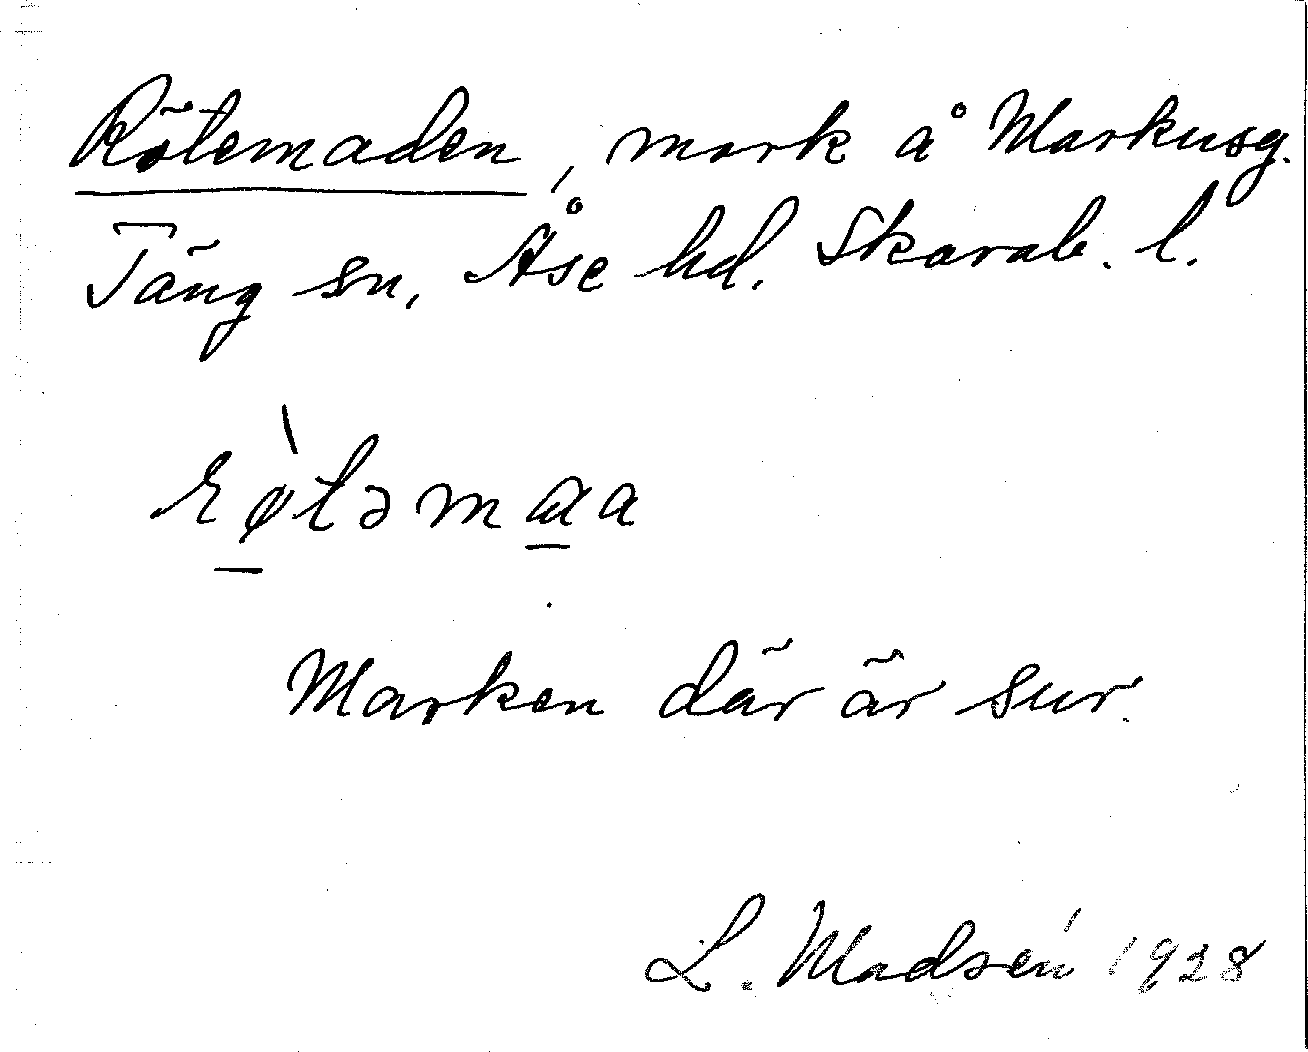 Rötemaden, mark å Markusg.
Täng sn, Åse hd. Skarab. l.
rø̀təmɑa
Marken där är sur.
L. Madsén 1928